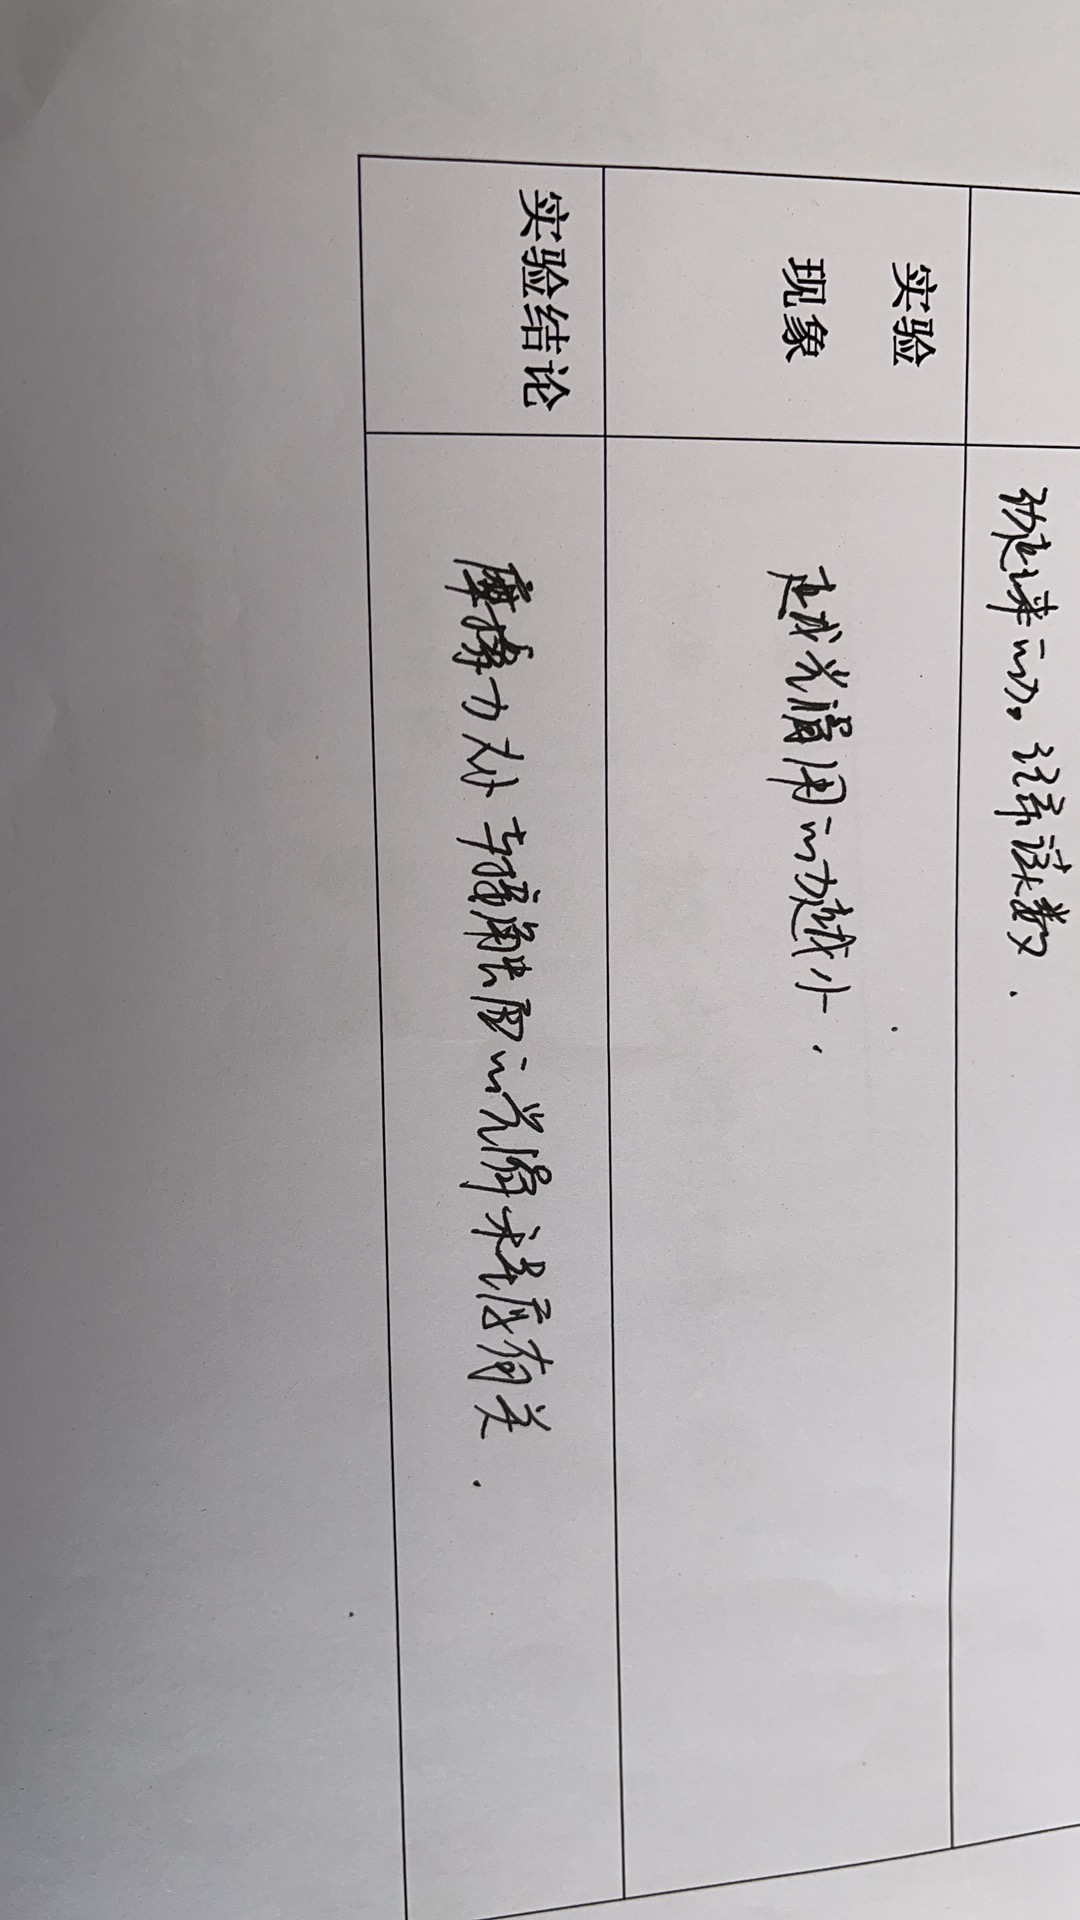 动起来的力。记录读数.
实验
现象
越光滑用的力越小.
实验结论
摩擦力大小与接触面的光滑程度有关.